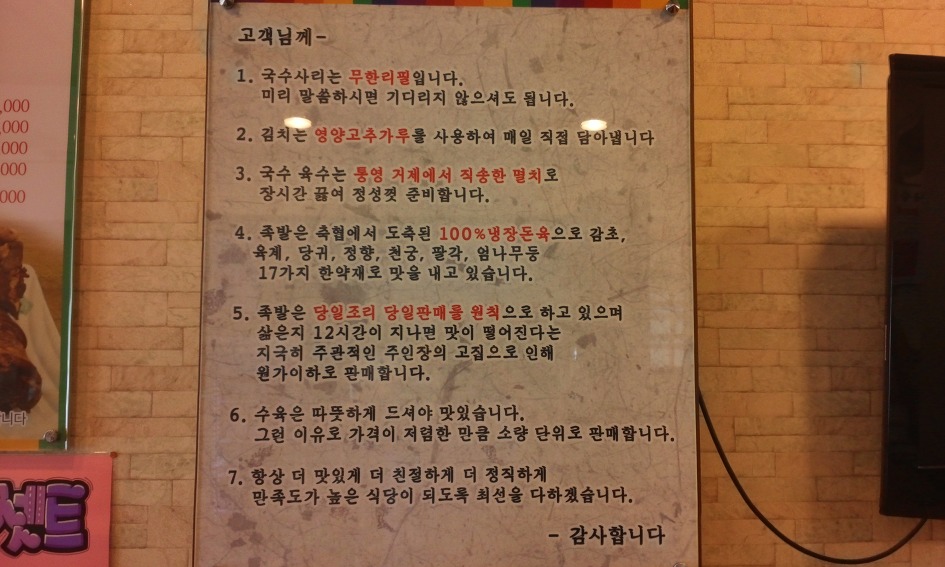 고객님께-
1. 국수사리는 무한리필입니다.
미리 말씀하시면 기디리지 않으셔도 됩니다.
2. 김치는 영양고추가루를 사용하여 매일 직접 담아냅니다
3. 국수 육수는 통영 거제에서 직송한 멸치로
장시간 끓여 정성껏 준비합니다.
4. 족발은 축협에서 도축된 100%냉장돈육으로 감초,
육계, 당귀, 정향, 천궁, 팔각, 엄나무등
17가지 한약재로 맛을 내고 있습니다.
5. 족발은 당일조리 당일판매를 원칙으로 하고 있으며
삶은지 12시간이 지나면 맛이 떨어진다는
지극히 주관적인 주인장의 고집으로 인해
원가이하로 판매합니다.
6. 수육은 따뜻하게 드셔야 맛있습니다.
그런 이유로 가격이 저렴한 만큼 소량 단위로 판매합니다.
7. 항상 더 맛있게 더 친절하게 더 정직하게
만족도가 높은 식당이 되도록 최선을 다하겠습니다.
- 감사합니다
,000
,000
,000
,000
,000
니다
셋트